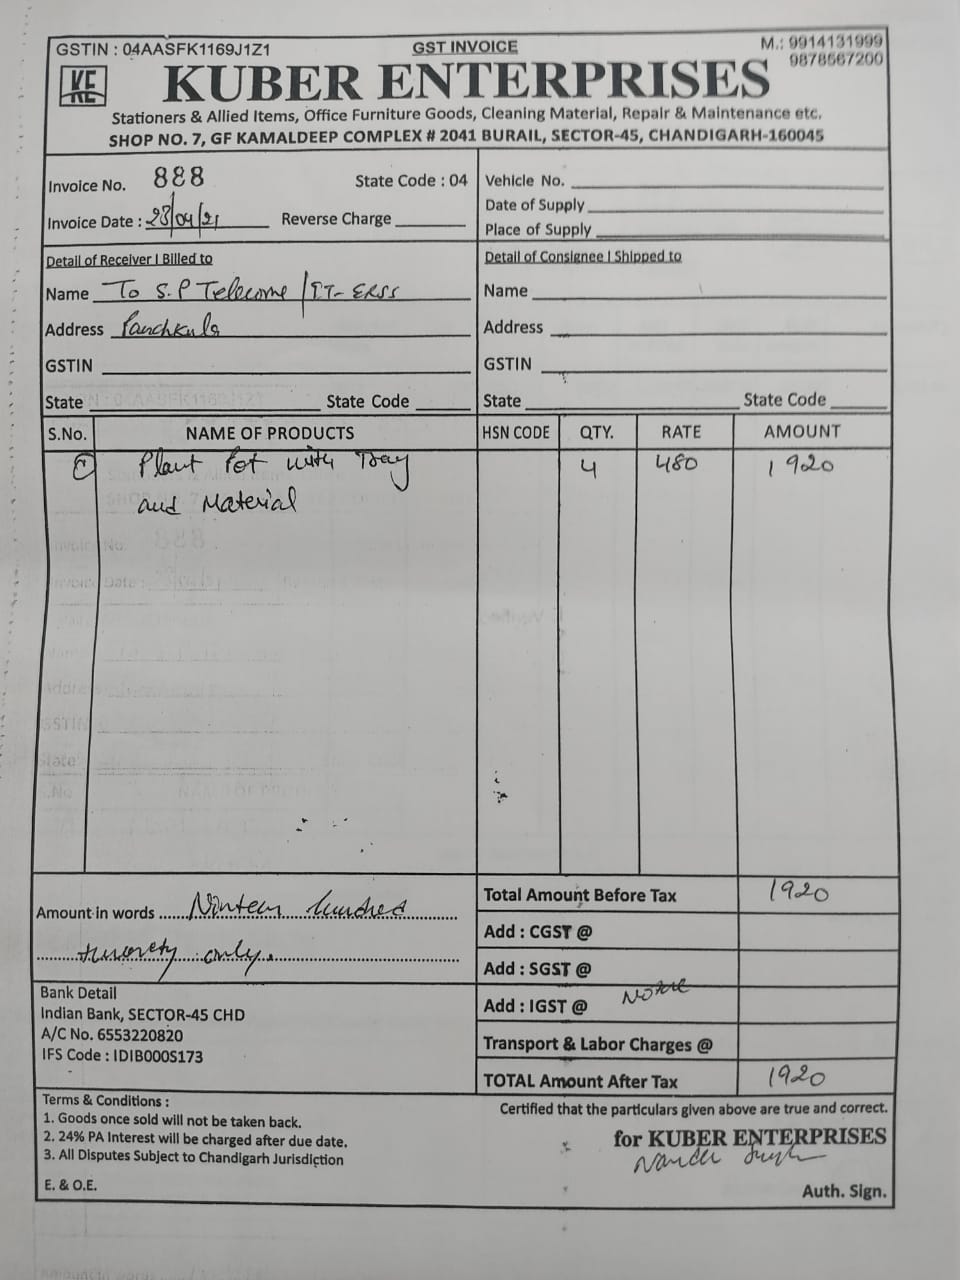 GSTIN : 04AASFK1169J1Z1
GST INVOICE
M.: 9914131999
9878567200
KE
KUBER ENTERPRISES
Stationers & Allied Items, Office Furniture Goods, Cleaning Material, Repair & Maintenance etc.
SHOP NO. 7, GF KAMALDEEP COMPLEX # 2041 BURAIL, SECTOR-45, CHANDIGARH-160045
Invoice No. 888 State Code : 04
Invoice Date : 23/04/21 Reverse Charge
Vehicle No.
Date of Supply
Place of Supply
Detail of Receiver | Billed to
Name To S.P Telecome / IT- ERSS
Address Panchkula
GSTIN
State State Code
Detail of Consignee | Shipped to
Name
Address
GSTIN
State State Code
S.No. NAME OF PRODUCTS HSN CODE QTY. RATE AMOUNT
Plant Pot with Tray 4 480 1920
and Material
Amount in words Ninteen hundred
twenty only.
Total Amount Before Tax 1920
Add : CGST @
Add : SGST @
Add : IGST @
Transport & Labor Charges @
TOTAL Amount After Tax 1920
Bank Detail
Indian Bank, SECTOR-45 CHD
A/C No. 6553220820
IFS Code : IDIB000S173
Terms & Conditions :
1. Goods once sold will not be taken back.
2. 24% PA Interest will be charged after due date.
3. All Disputes Subject to Chandigarh Jurisdiction
E. & O.E.
Certified that the particulars given above are true and correct.
for KUBER ENTERPRISES
Auth. Sign.